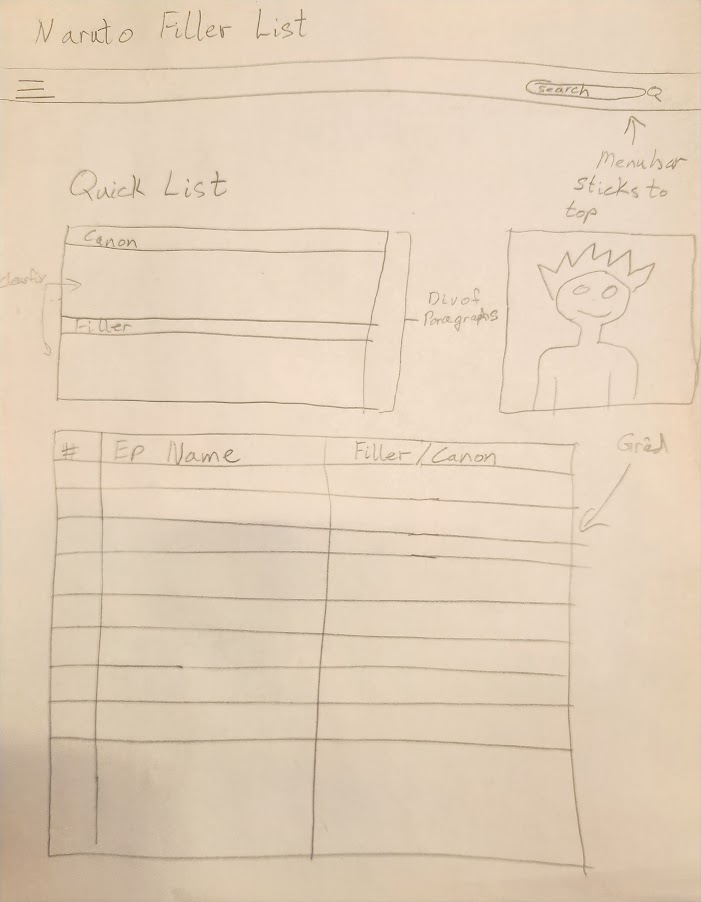 Naruto Filler List
search
Menubar
sticks to
top
Quick List
Canon
Filler
Div of
Paragraphs
# Ep Name Filler/Canon
Grid